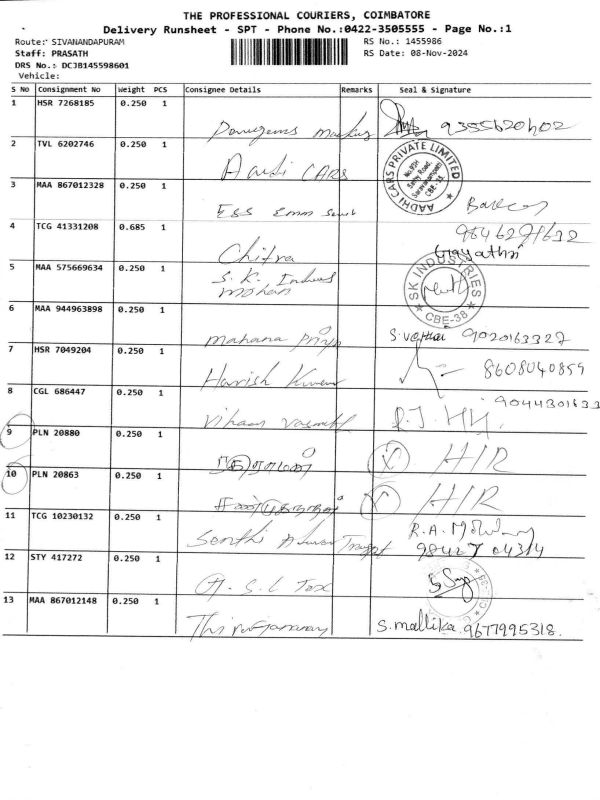 THE PROFESSIONAL COURIERS, COIMBATORE
Delivery Runsheet - SPT - Phone No.:0422-3505555 - Page No.:1
Route: SIVANANDAPURAM
RS No.: 1455986
Staff: PRASATH
RS Date: 08-Nov-2024
DRS No.: DCJB145598601
Vehicle:
S No Consignment No Weight PCS Consignee Details Remarks Seal & Signature
1 HSR 7268185 0.250 1
9355620402
2 TVL 6202746 0.250 1
CARS
AADHI CARS PRIVATE LIMITED
3 MAA 867012328 0.250 1
ESS
4 TCG 41331208 0.685 1
Chitra Gayathri
5 MAA 575669634 0.250 1
S.K. Indus
Mohan
SK INDUSTRIES
CBE-38
6 MAA 944963898 0.250 1
mahana Priya 9020163327
7 HSR 7049204 0.250 1
Harish Kumar 8608040859
8 CGL 686447 0.250 1
9044301633
9 PLN 20880 0.250 1
X H/R
10 PLN 20863 0.250 1
X H/R
11 TCG 10230132 0.250 1
Senthi R.A.
98427 04314
12 STY 417272 0.250 1
S.L Tex
13 MAA 867012148 0.250 1
S. mallika 9677995318.